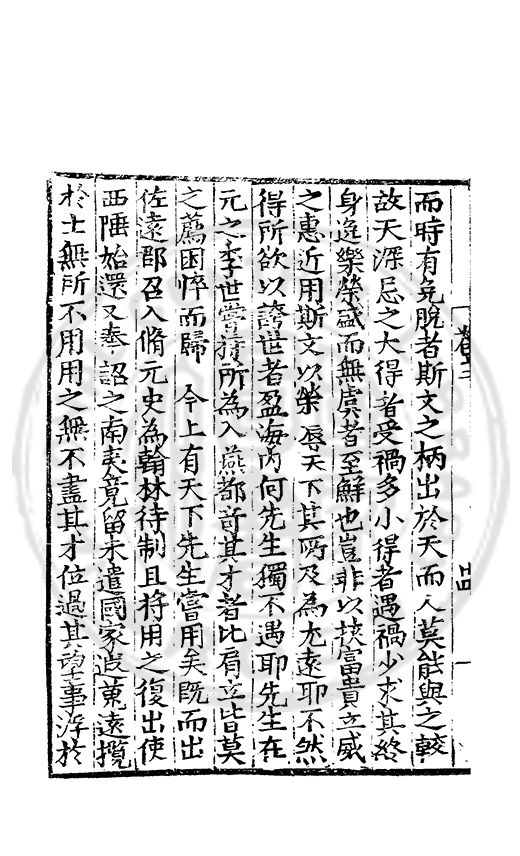 卷
而時有免脫者斯文之柄出於天而人莫能與之較
故天深忌之大得者受禍多小得者遇禍少求其終
身逸樂榮盛而無虞者至鮮也豈非以挾富貴立威
之惠近用斯文以榮辱天下其所及為尤遠耶不然
得所欲以誇世者盈海內何先生獨不遇耶先生在
元之季世嘗持所為入燕都奇其才者比肩立皆莫
之薦困悴而歸　今上有天下先生嘗用矣既而出
佐遠郡召入脩元史為翰林待制且將用之復出使
西陲始還又奉　詔之南夷竟留未遣國家遐蒐遠攬
於士無所不用用之無不盡其才位過其望事浮於